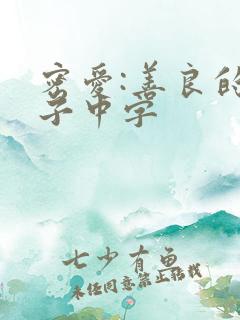 密爱:善良的
子中字
七少有鱼
未经同意禁止转载